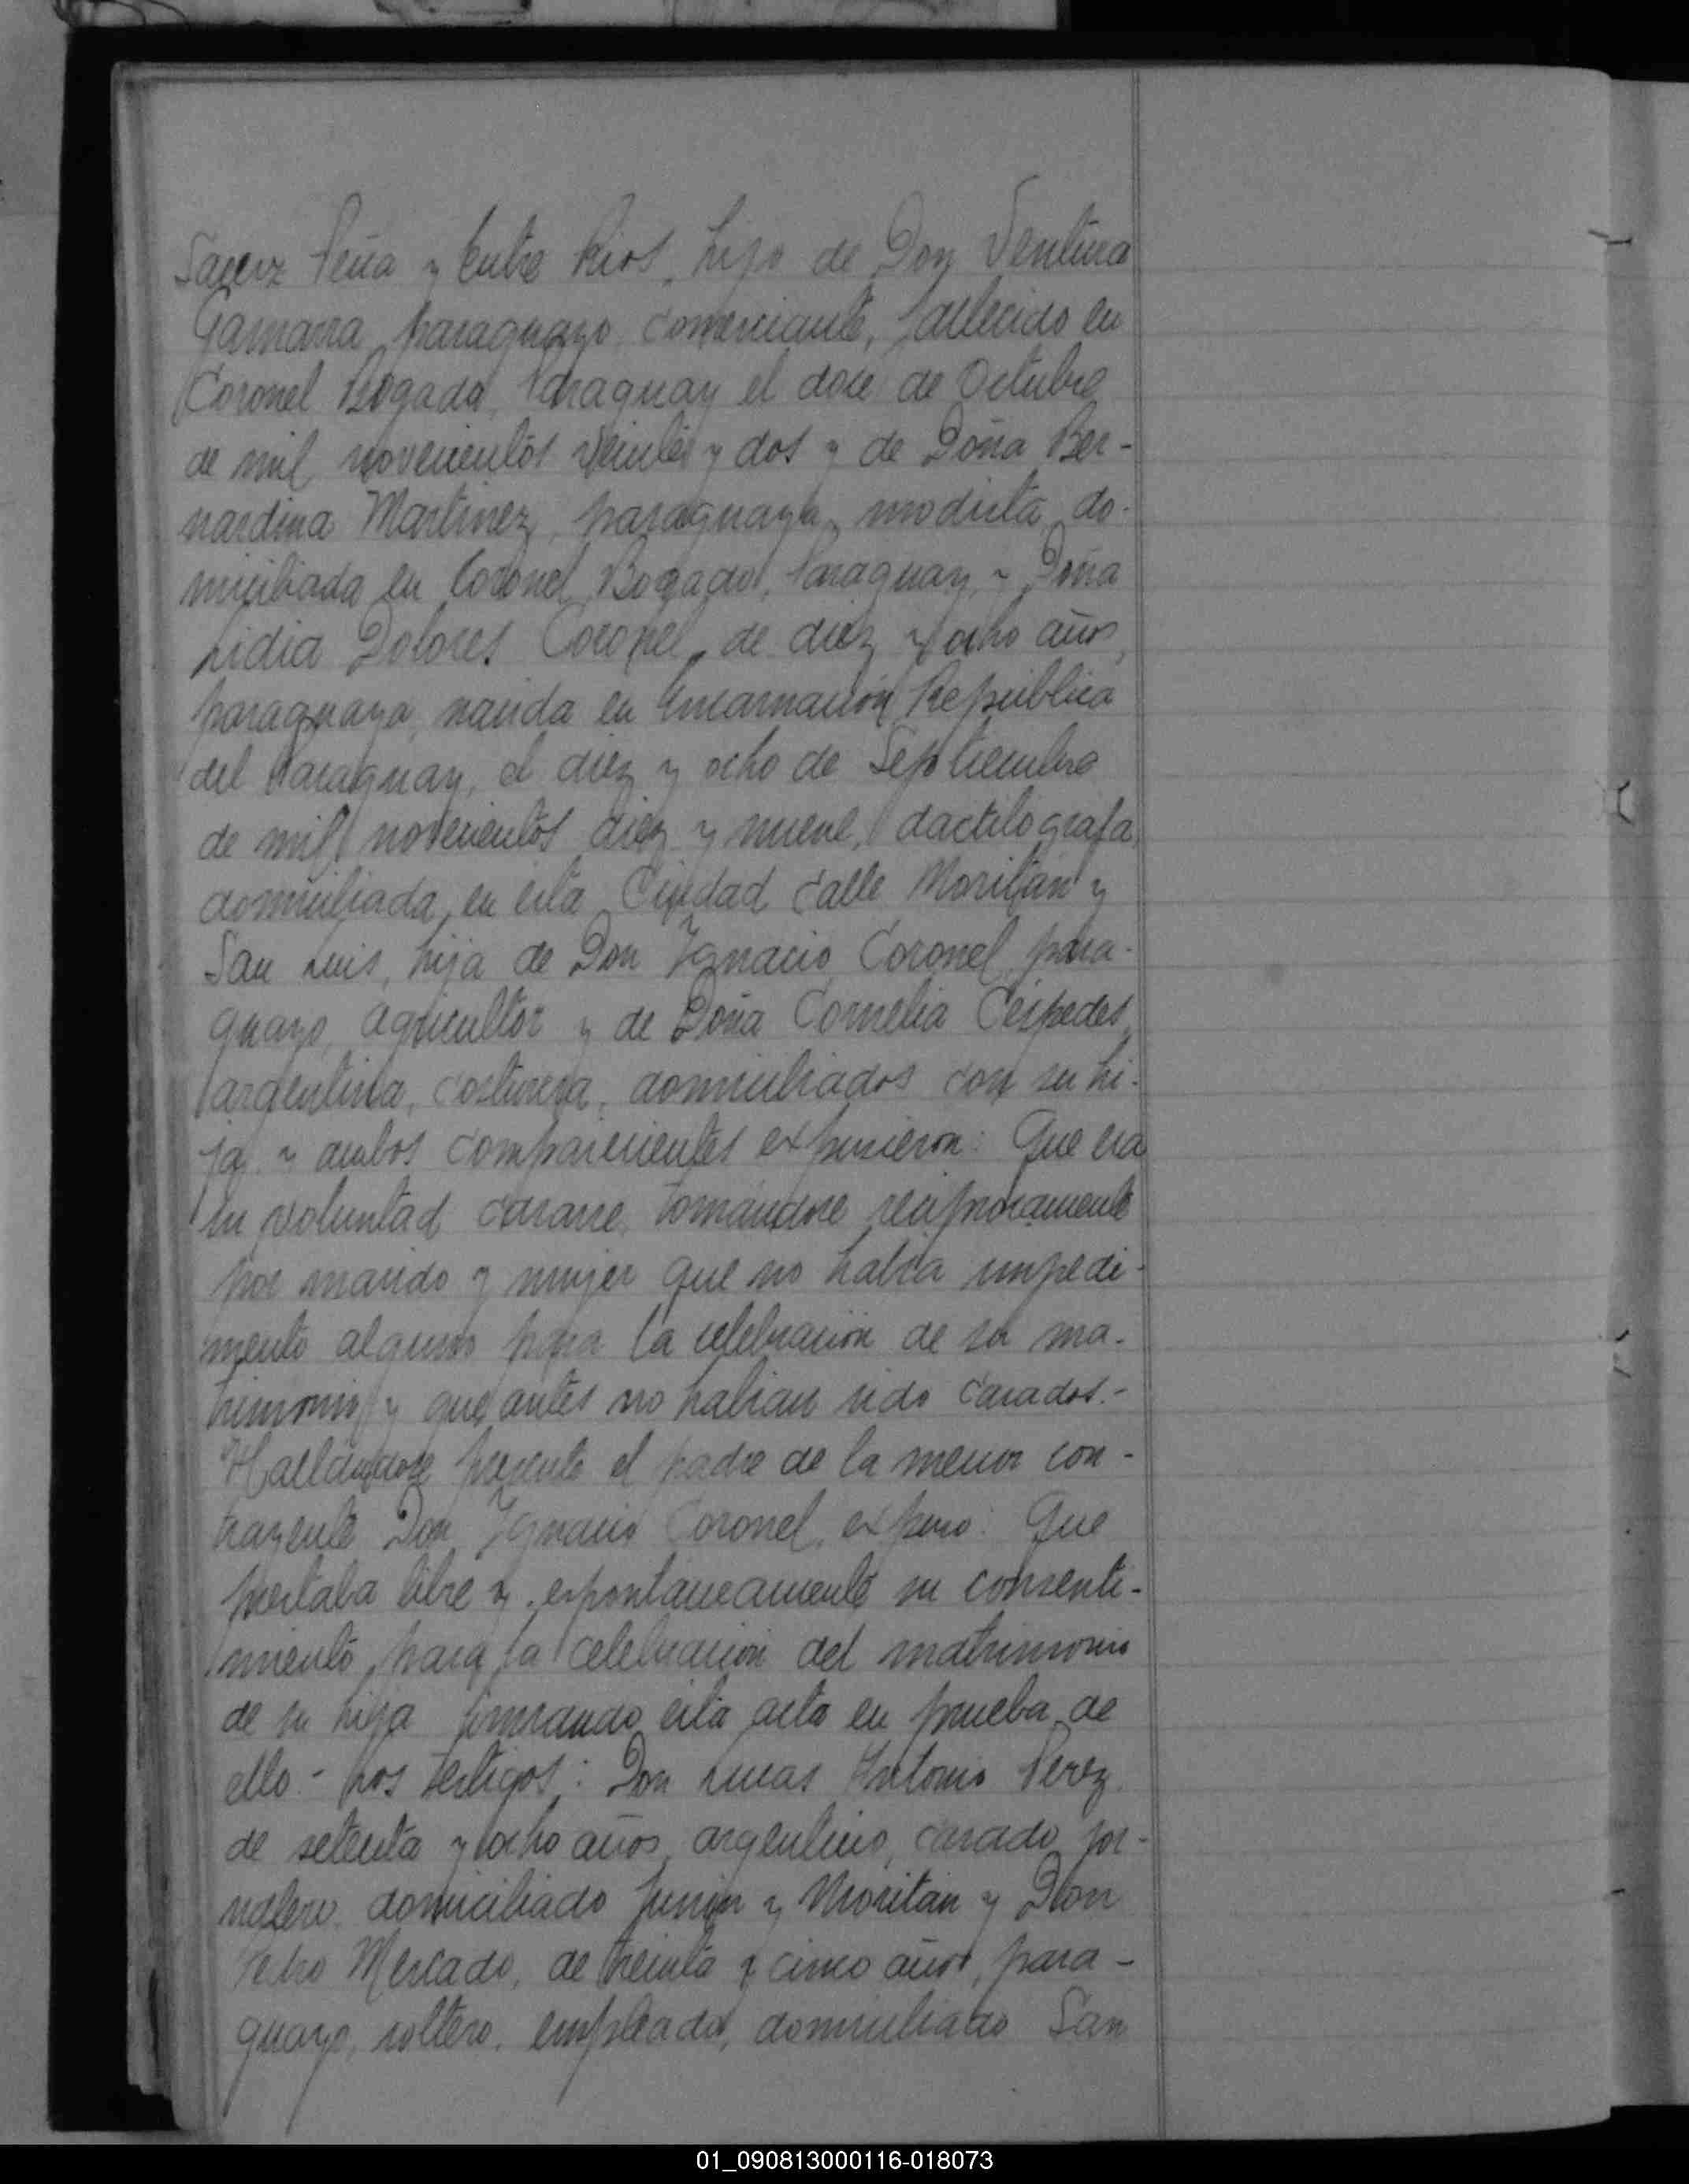 Saenz Peña y Entre Rios, hijo de Don Ventura
Gamarra, paraguayo, comerciante, fallecido en
Coronel Bogado, Paraguay el doce de Octubre
de mil novecientos veinte y dos y de Doña Ber-
nardina Martinez, paraguaya, modista, do-
miciliada en Coronel Bogado, Paraguay, y Doña
Lidia Dolores Coronel, de diez y ocho años,
paraguaya, nacida en Encarnación República
del Paraguay, el diez y ocho de Septiembre
de mil novecientos diez y nueve, dactilografa,
domiciliada en esta Ciudad calle Moritán y
San Luis, hija de Don Ignacio Coronel, para-
guayo, agricultor y de Doña Cornelia Céspedes,
argentina, costurera, domiciliados con su hi-
ja y ambos comparecientes expusieron: Que era
su voluntad casarse, tomándose reciprocamente
por marido y mujer que no habia impedi-
mento alguno para la celebración de su ma-
trimonio y que antes no habian sido casados.-
Hallándose presente el padre de la menor con-
trayente Don Ignacio Coronel, expuso: Que
prestaba libre y espontaneamente su consenti-
miento para la celebración del matrimonio
de su hija firmando esta acta en prueba de
ello.- Los testigos: Don Lucas Antonio Perez,
de setenta y ocho años, argentino, casado, jor-
nalero, domiciliado Junin y Moritán y Don
Pedro Mercado, de treinta y cinco años, para-
guayo, soltero, empleado, domiciliado San
01_090813000116-018073